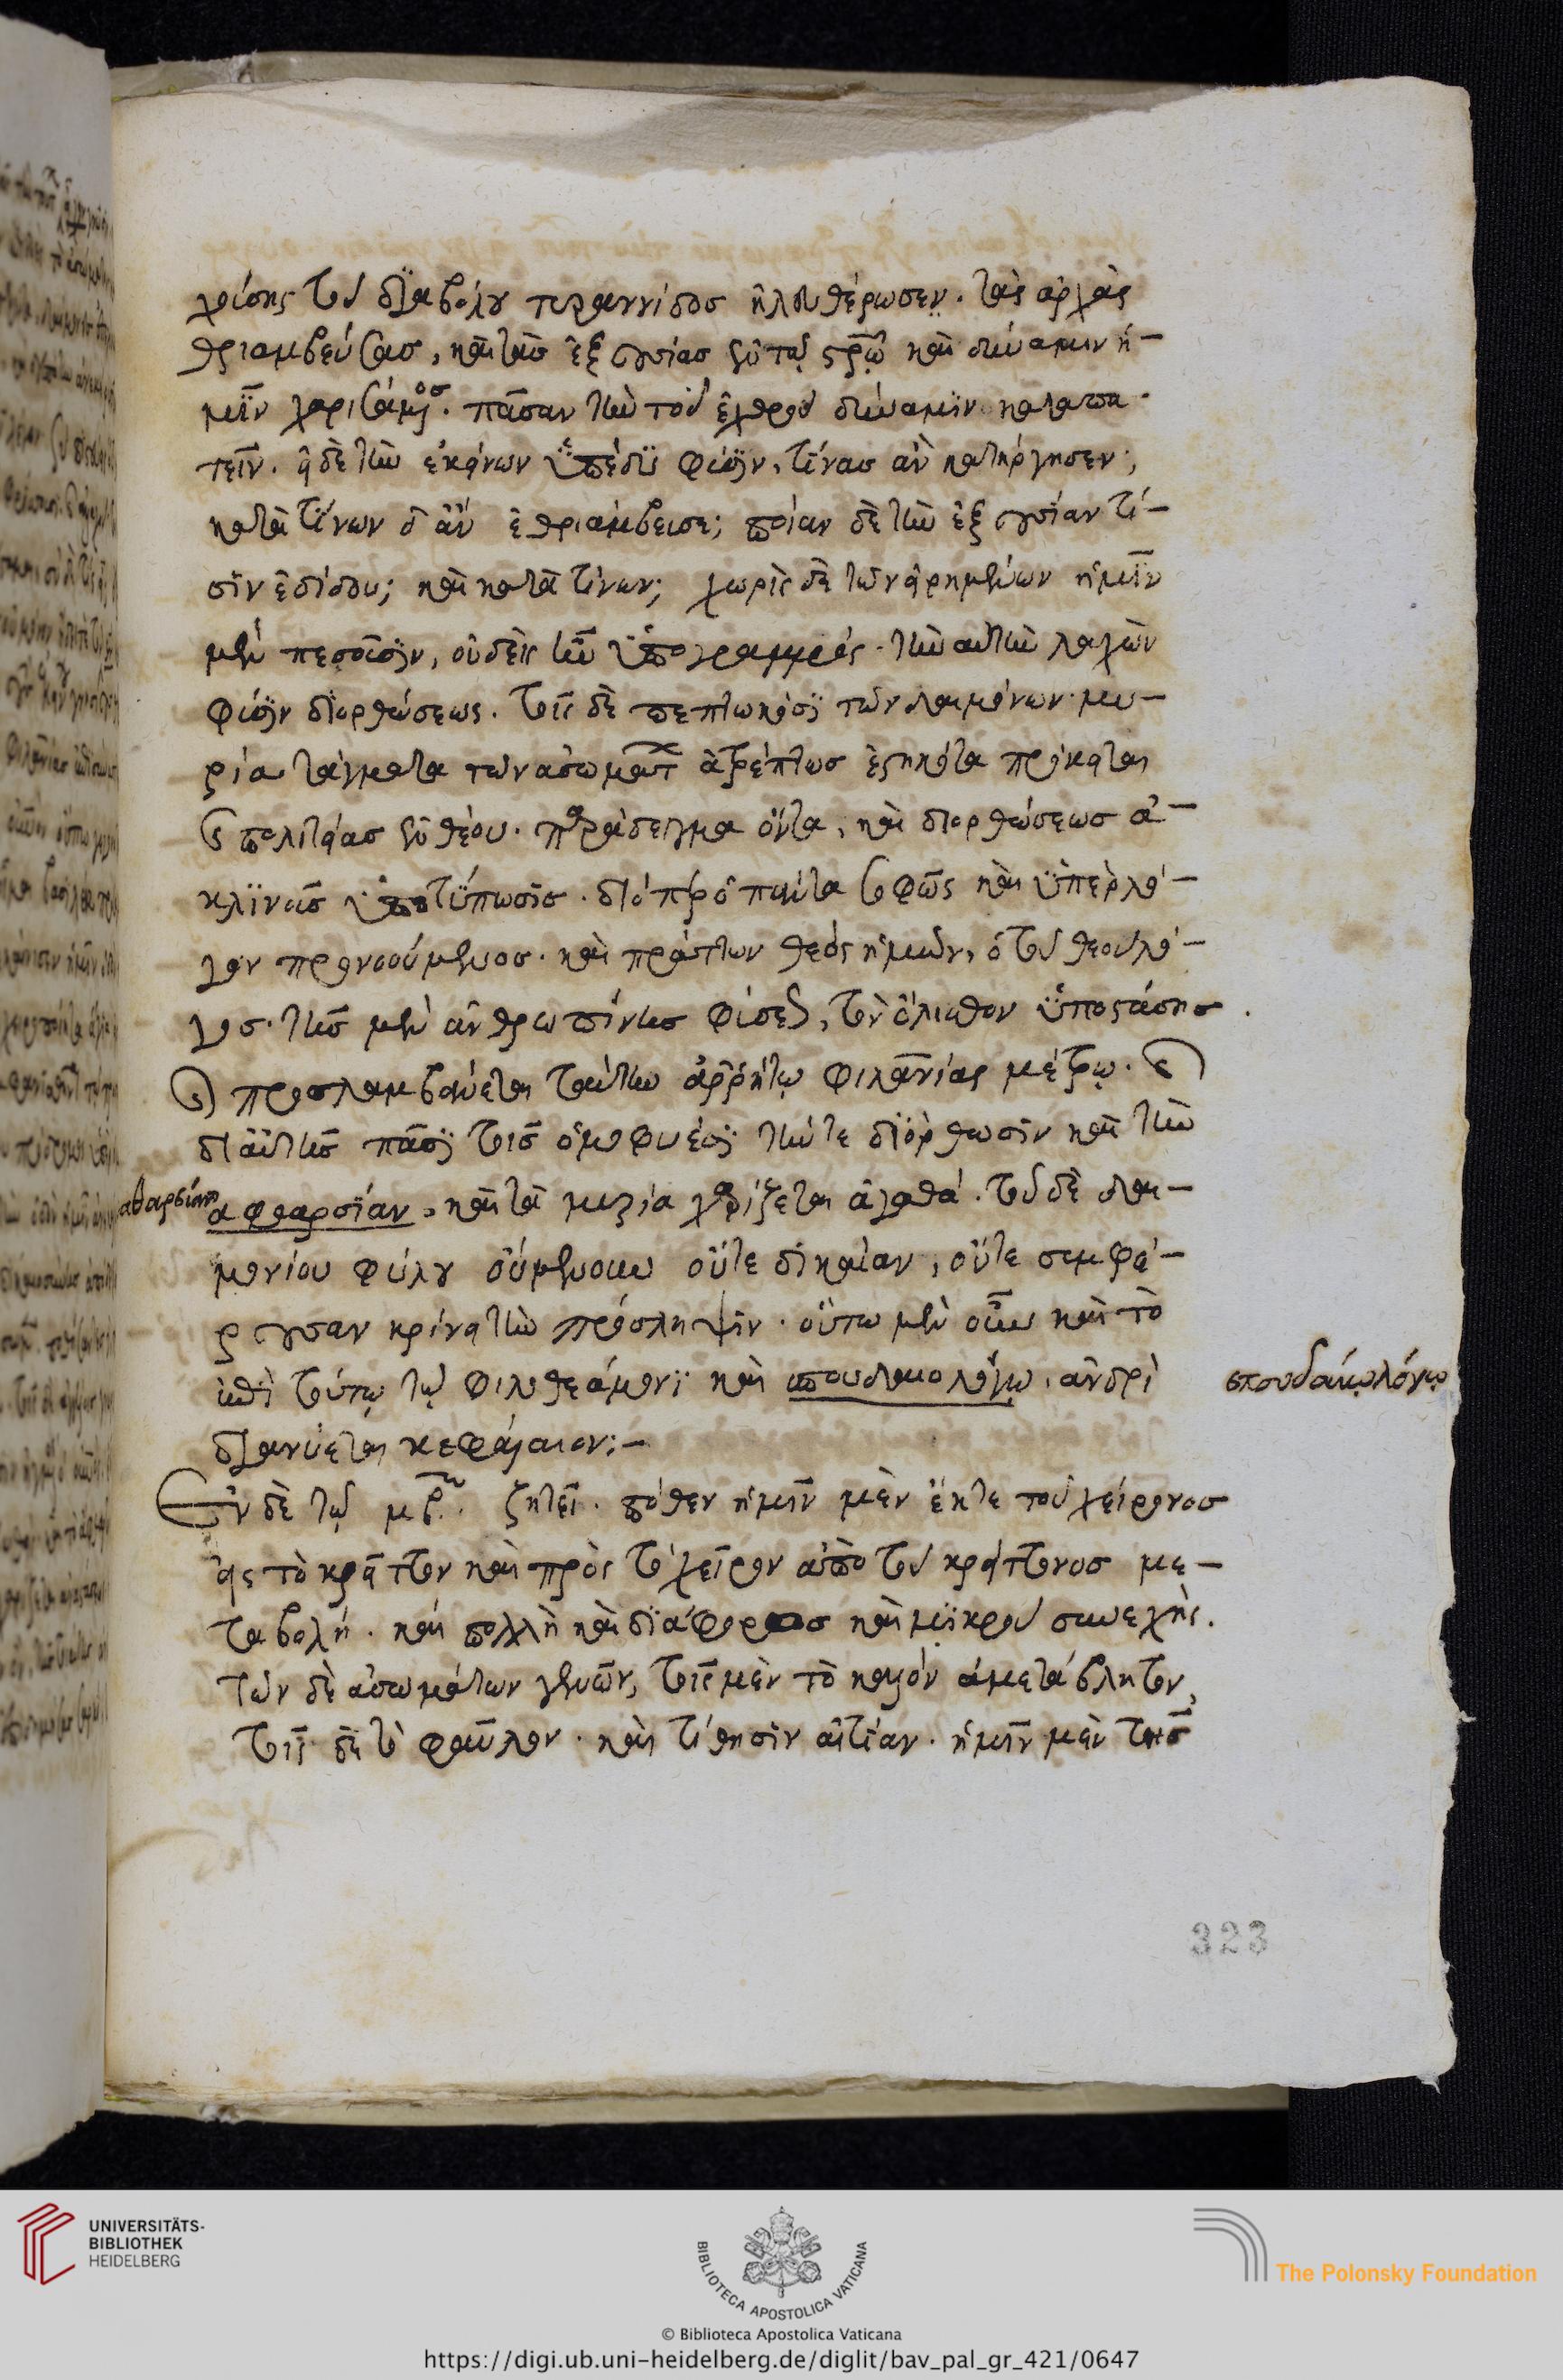 χρίσης τοῦ διαβόλου τυραννίδος ἠλευθέρωσεν. τὰς ἀρχὰς
θριαμβεύσας, καὶ τὰς ἐξουσίας ἐν τῷ σρῶ καὶ δύναμιν ἡ-
μῖν χαρισάμενος. πᾶσαν τὴν τοῦ ἐχθροῦ δύναμιν καταπα-
τεῖν. εἰ δὲ τὴν ἐκείνων ὑπέδυ φύσιν, τίνας ἂν κατήργησεν;
κατὰ τίνων δ' ἂν ἐθριάμβευσε; ποίαν δὲ τὴν ἐξουσίαν τί-
σιν ἐδίδου; καὶ κατὰ τίνων; χωρὶς δὲ τῶν εἰρημένων ἡμῖν
μὲν πεσοῦσιν, οὐδεὶς ἦν ὑπογραμμός. τὴν αὐτὴν λαχὼν
φύσιν διορθώσεως. τοῖς δὲ πεπτωκόσι τῶν δαιμόνων μυ-
ρία τάγματα τῶν ἀσωμάτ ἀτρέπτως ἑστηκότα πρόκειται
τῆς πολιτείας ἐν θέου. παράδειγμα ὄντα, καὶ διορθώσεως ἀ-
κλινὴς ὑποτύπωσις. διὸ πρὸ πάντα σοφῶς καὶ ὑπὲρ λό-
γον προνοούμενος. καὶ πράττων θεὸς ἡμῶν, ὁ τοῦ θεοῦ λό-
γος. τῆς μὲν ἀνθρωπίνης φύσεως, τὸν ὄλισθον ὑποστάσης.
προσλαμβάνεται ταύτην ἀρρήτῳ φιλανίας μέτρῳ. καὶ
δι' αὐτῆς πᾶσι τοῖς ὁμοφυέσι τήν τε διόρθωσιν καὶ τὴν
ἀφθαρσίαν, καὶ τὰ μυρία χαρίζεται ἀγαθά. τοῦ δὲ δαι-
ἀθαρσίαν
μονίου φύλου οὐμενοῦν οὔτε δικαίαν, οὔτε συμφέ-
ρουσαν κρίνει τὴν πρόσληψιν. οὕτω μὲν οὖν καὶ τὸ
ἐπὶ τούτῳ τῷ φιλοθεάμονι καὶ σπουδαιολόγῳ, ἀνδρὶ
σπουδαίῳ λόγῳ
διανύεται κεφάλαιον:-
Ἐν δὲ τῷ μβω. ζητεῖ. πόθεν ἡμῖν μὲν ἔκ τε τοῦ χείρονος
εἰς τὸ κρεῖττον καὶ πρὸς τὸ χεῖρον ἀπὸ τοῦ κρείττονος με-
ταβολή. καὶ πολλὴ καὶ διάφορος καὶ μικροῦ συνεχής.
τῶν δὲ ἀσωμάτων γενῶν, τοῖς μὲν τὸ καλὸν ἀμετάβλητον,
τοῖς δὲ τὸ φαῦλον. καὶ τίθησιν αἰτίαν. ἡμῖν μὲν τῆς
323
UNIVERSITÄTS-
BIBLIOTHEK
HEIDELBERG
BIBLIOTECA APOSTOLICA VATICANA
© Biblioteca Apostolica Vaticana
The Polonsky Foundation
https://digi.ub.uni-heidelberg.de/diglit/bav_pal_gr_421/0647